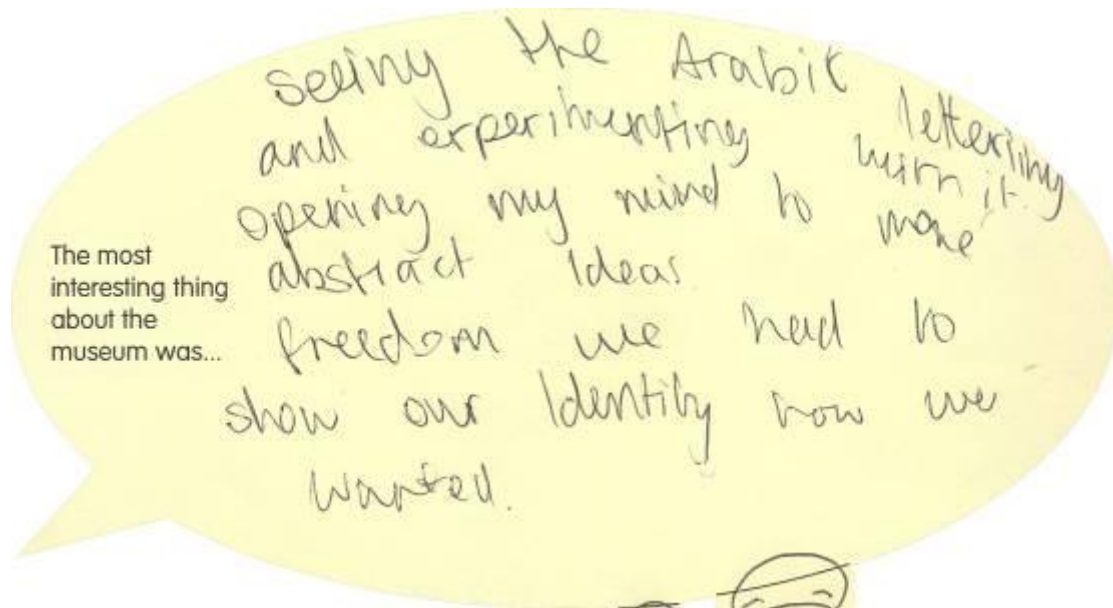 The most
interesting thing
about the
museum was...
seeing the Arabic lettering
and experimenting with it.
opening my mind to more
abstract Ideas
freedom we had to
show our Identity how we
wanted.